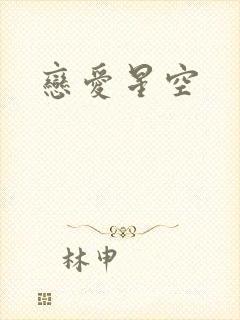 戀愛星空
林申